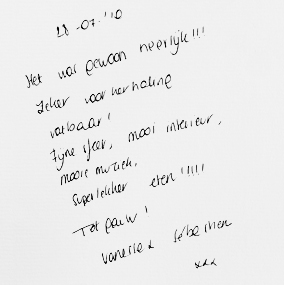 28-07-'10
Het was gewoon heerlijk!!!
Zeker voor herhaling
vatbaar!
Fijne sfeer, mooi interieur,
mooie muziek,
Superlekker eten!!!!!
Tot gauw!
Vanessa &
xxx